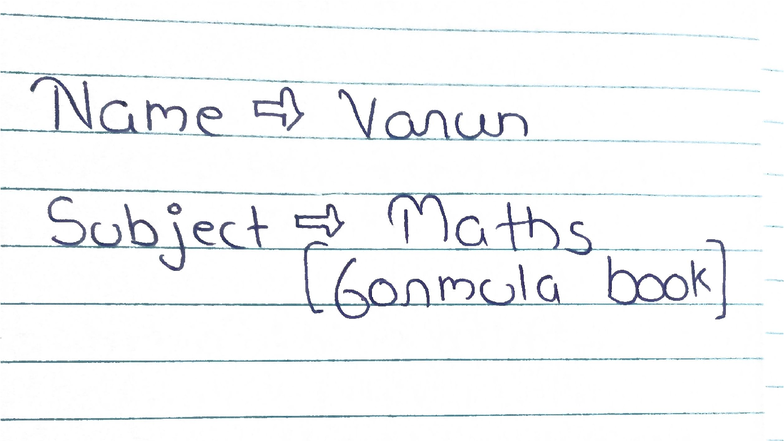 Name ⇨ Varun
Subject ⇨ Maths
[Formula book]